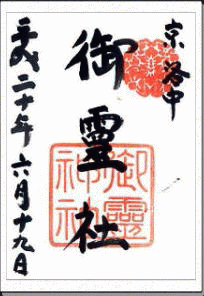 京洛中
御靈社
御靈
神社
平成二十年六月十九日